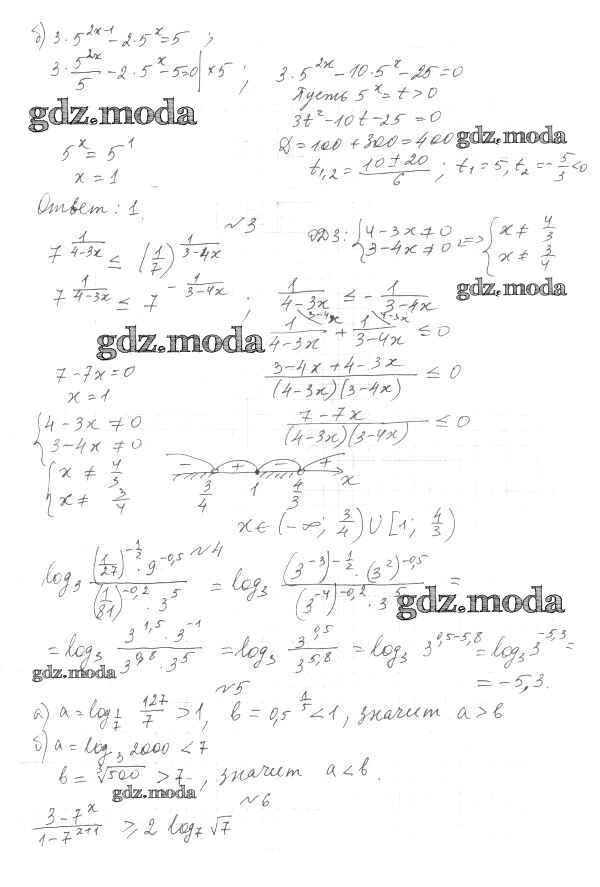 б) 3·5^(2x-1) - 2·5^x = 5 ;
3·5^(2x)/5 - 2·5^x - 5 = 0 | ×5 ; 3·5^(2x) - 10·5^x - 25 = 0
Пусть 5^x = t > 0
gdz.moda
3t² - 10t - 25 = 0
gdz.moda
D = 100 + 300 = 400
5^x = 5^1
t₁,₂ = (10 ± 20)/6 ; t₁ = 5, t₂ = -5/3 < 0
x = 1
Ответ: 1.
№3
7^(1/(4-3x)) ≤ (1/7)^(1/(3-4x)) ОДЗ: { 4-3x ≠ 0 3-4x ≠ 0 => { x ≠ 4/3 x ≠ 3/4
gdz.moda
7^(1/(4-3x)) ≤ 7^(-1/(3-4x)) ; 1/(4-3x) ≤ -1/(3-4x)
gdz.moda
3-4x 4-3x
1/(4-3x) + 1/(3-4x) ≤ 0
7 - 7x = 0 (3-4x+4-3x)/((4-3x)(3-4x)) ≤ 0
x = 1
{ 4-3x ≠ 0 (7-7x)/((4-3x)(3-4x)) ≤ 0
3-4x ≠ 0
{ x ≠ 4/3 - + - +
x ≠ 3/4 3/4 1 4/3 x
x ∈ (-∞; 3/4) ∪ [1; 4/3)
№4
log₃ ((1/27)^(-1/2) · 9^(-0,5))/((1/81)^(-0,2) · 3^5) = log₃ ((3^(-3))^(-1/2) · (3²)^(-0,5))/((3^(-4))^(-0,2) · 3^5) =
gdz.moda
= log₃ (3^(1,5) · 3^(-1))/(3^(0,8) · 3^5) = log₃ 3^(0,5)/3^(5,8) = log₃ 3^(0,5-5,8) = log₃ 3^(-5,3) =
gdz.moda
= -5,3.
№5
а) a = log_(1/7) 127/7 > 1, b = 0,5^(1/5) < 1, значит a > b
б) a = log₃ 2000 < 7
b = ³√500 > 7, значит a < b.
gdz.moda
№6
(3-7^x)/(1-7^(x+1)) ≥ 2 log₇ √7